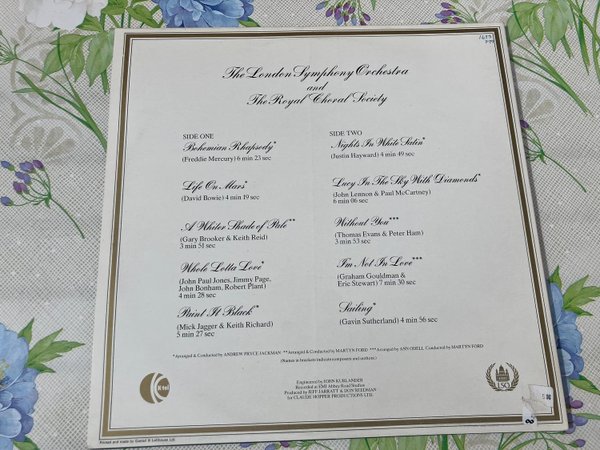 1683
The London Symphony Orchestra
and
The Royal Choral Society
SIDE ONE
Bohemian Rhapsody*
(Freddie Mercury) 6 min 23 sec
Life On Mars*
(David Bowie) 4 min 19 sec
A Whiter Shade of Pale**
(Gary Brooker & Keith Reid)
3 min 51 sec
Whole Lotta Love*
(John Paul Jones, Jimmy Page,
John Bonham, Robert Plant)
4 min 28 sec
Paint It Black*
(Mick Jagger & Keith Richard)
5 min 27 sec
SIDE TWO
Nights In White Satin*
(Justin Hayward) 4 min 49 sec
Lucy In The Sky With Diamonds*
(John Lennon & Paul McCartney)
6 min 06 sec
Without You***
(Thomas Evans & Peter Ham)
3 min 53 sec
I'm Not In Love***
(Graham Gouldman &
Eric Stewart) 7 min 30 sec
Sailing*
(Gavin Sutherland) 4 min 56 sec
*Arranged & Conducted by ANDREW PRYCE JACKMAN **Arranged & Conducted by MARTYN FORD ***Arranged by ANN ODELL Conducted by MARTYN FORD
(Names in brackets indicate composers and authors)
K-tel
Engineered by JOHN KURLANDER
Recorded at EMI Abbey Road Studios
Produced by JEFF JARRATT & DON REEDMAN
for CLAUDE HOPPER PRODUCTIONS LTD.
LSO
Printed and made by Garrod & Lofthouse Ltd